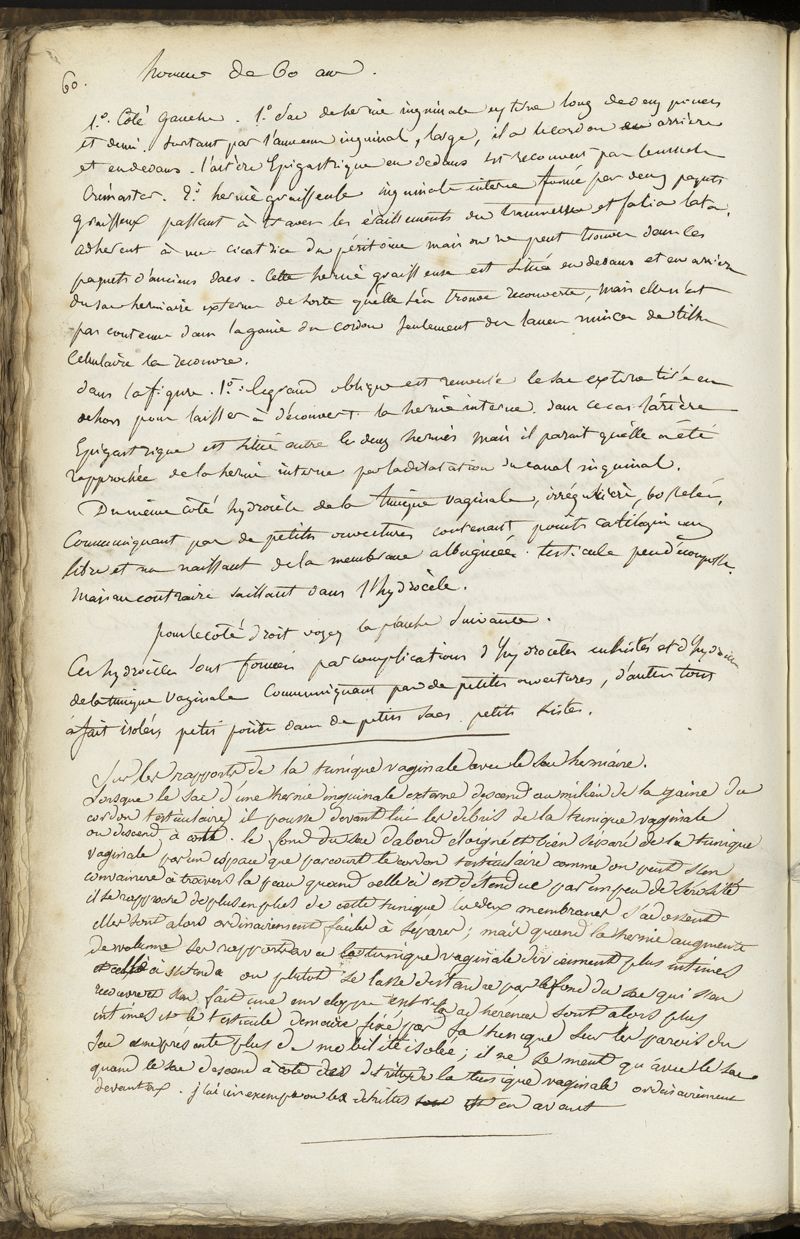 60.
homme de 60 ans.
1º. Côté gauche. 1º sac de hernie inguinale externe long de deux pouces
et demi. Sortant par l'anneau inguinal, large, il a le cordon en arrière
et en dedans. l'artère Epigastrique en dedans est recouvert par le muscle
Crémaster. 2º. hernie graisseuse inguinale interne formée par deux paquets
graisseux passant à travers les éraillements du transverse et fascia lata,
adhérent à une cicatrice du péritoine mais on ne peut trouver dans les
paquets d'anciens sacs. Cette hernie graisseuse est située en dedans et en arrière
du sac herniaire externe de sorte qu'elle s'en trouve recouverte, mais elle n'est
pas contenue dans la gaine du cordon seulement du tissu
Celulaire la recouvre.
dans la figure. 1º: le grand oblique est renversé le sac externe tiré en
dehors pour laisser à découvert la hernie interne. dans ce cas l'artère
Epigastrique est située entre les deux hernies mais il parait qu'elle a été
rapprochée de la hernie interne par la dilatation du canal inguinal.
Du même côté hydrocèle de la tunique vaginale, irrégulière, bosselée,
Communiquant par de petites ouvertures contenant
libre et naissant de la membrane albuginée. testicule peu
mais au contraire saillant dans l'hydrocèle.
pour le côté droit voyez la planche suivante.
Ces hydrocèles sont formées par complications d'hydrocèles enkistés et d'hydrocèles
de la tunique vaginale Communiquant par de petites ouvertures, d'autres tout
à fait isolées petit dans de petits sacs petits kistes.
Sur les rapports de la tunique vaginale avec le sac herniaire.
Lorsque le sac d'une hernie inguinale externe descend au milieu de la gaine du
cordon testiculaire il pousse devant lui les débris de la tunique vaginale
ou descend à coté. le fond du sac d'abord éloigné et bien séparé de la tunique
vaginale par un espace que parcourt le cordon testiculaire comme on peut s'en
convaincre à travers la peau quand celle ci est détendue par un peu de sérosité
il se rapproche de plus en plus de cette tunique les deux membranes s'adossent
elles sont alors ordinairement faciles à séparer; mais quand la hernie augmente
de volume ses rapports avec la tunique vaginale deviennent plus intimes
et celle ci s'étend ou plutôt se laisse distendre par le fond du sac qui s'en
recouvre et s'en fait une enveloppe adhérences sont alors plus
intimes et le testicule demeure fixé par sa tunique sur les parois du
sac ne présente plus de mobilité isolée; il ne se meut qu'avec le sac
quand le sac descend à coté la tunique vaginale ordinairement
devant eux. j'ai un exemple en avant